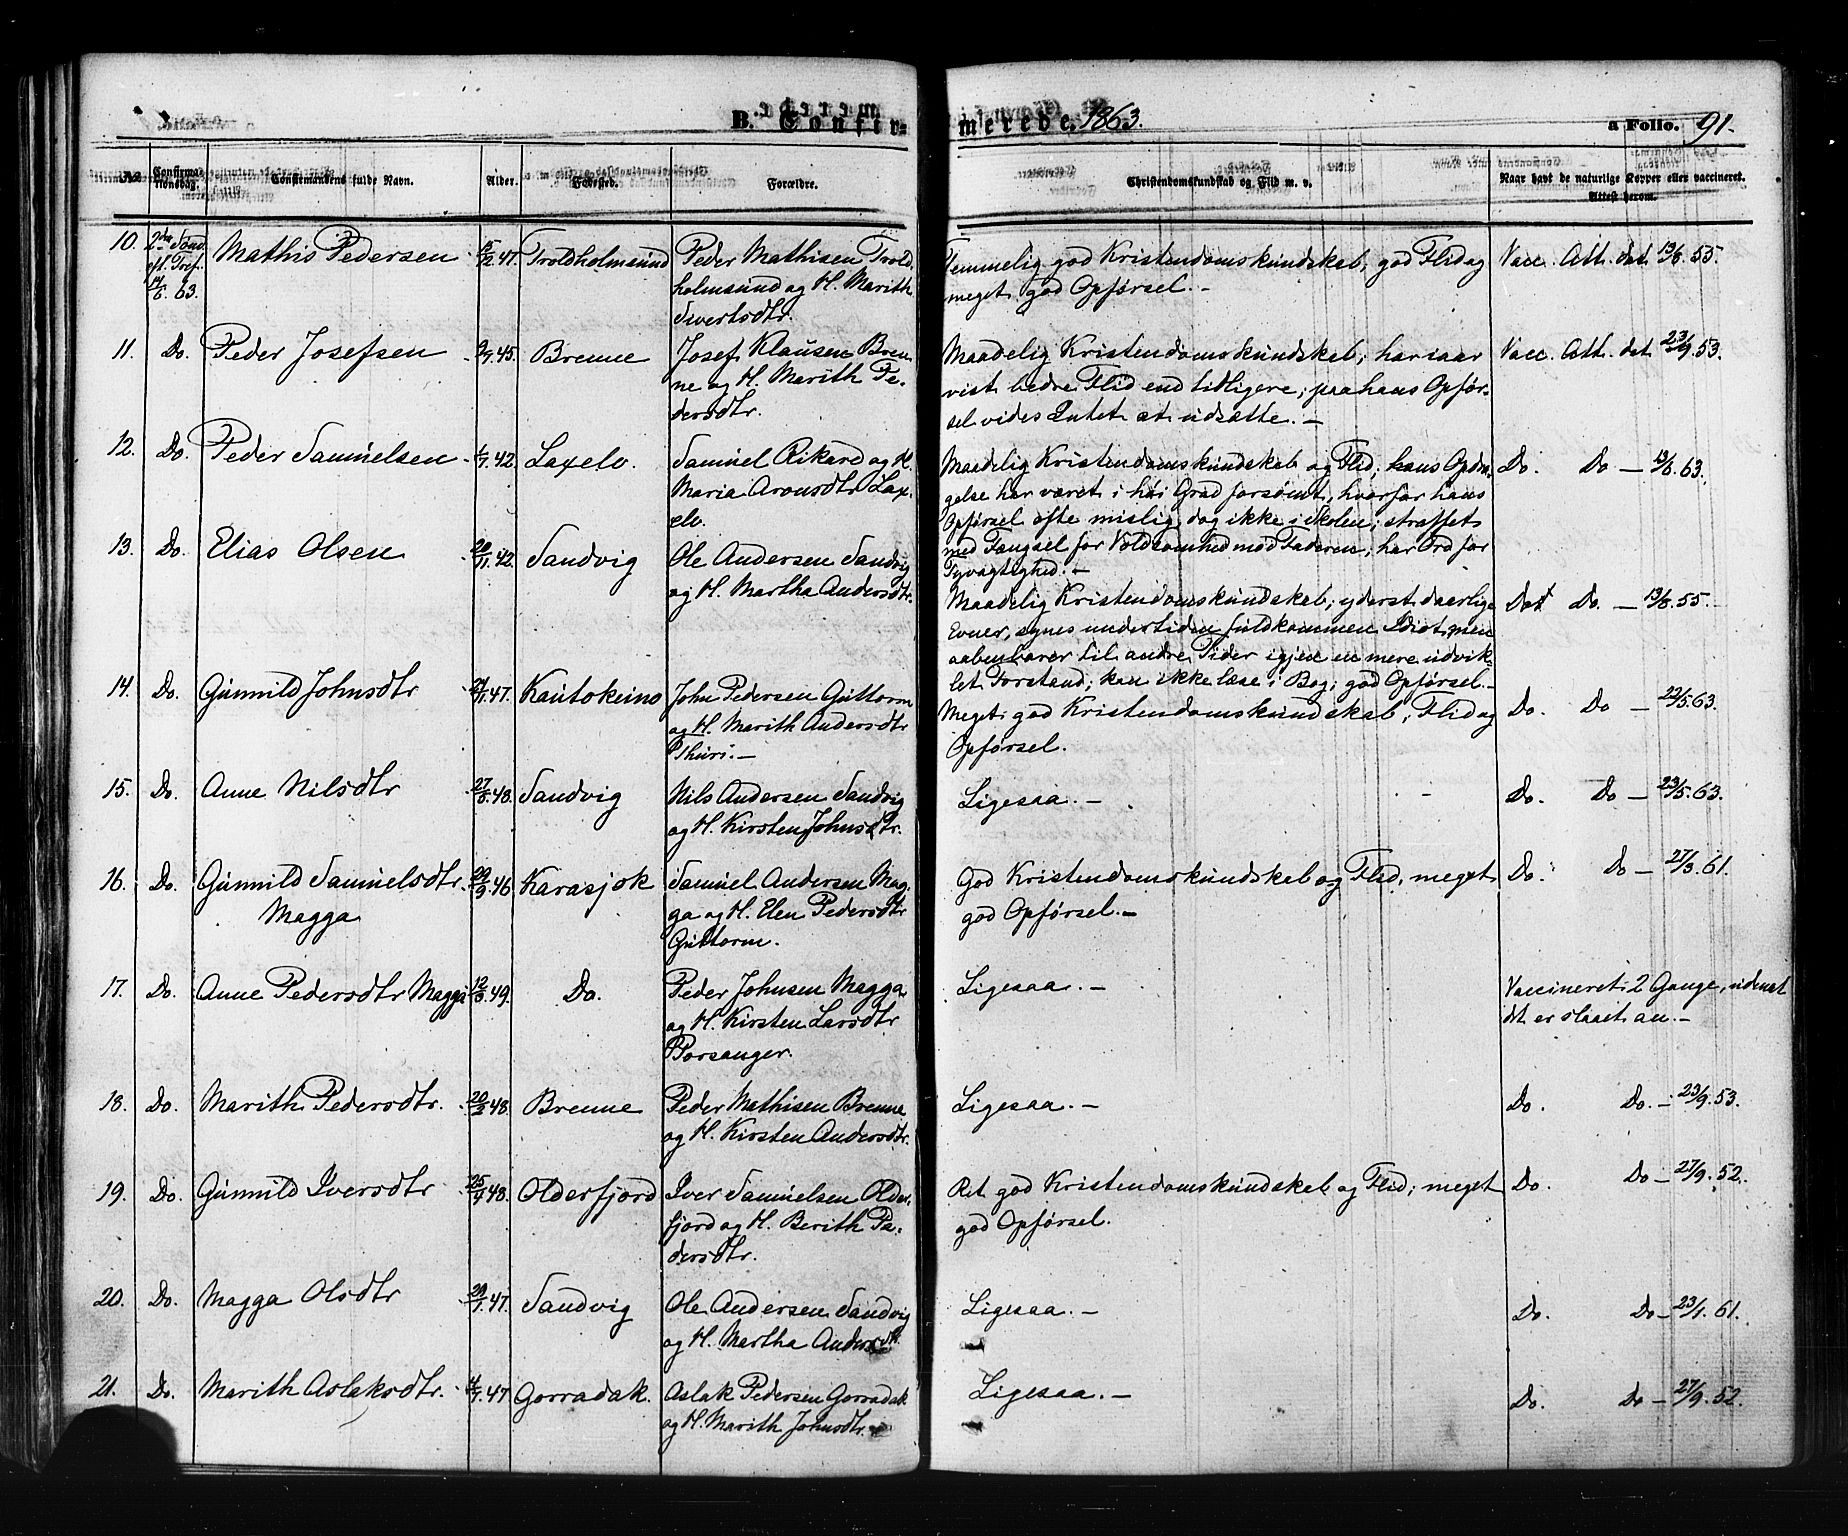 B. Confir-
merede. 1863.
a Folio. 91.
No
Confirma-
tionsdag.
Confirmandens fulde Navn.
Alder.
Fødested.
Forældre.
Christendomskundskab og Flid m. v.
Naar havt de naturlige Kopper eller vaccineret.
Attest herom.
10. 2den Sønd. Mathis Pedersen 47. Troldholmsund Peder Mathisen Trold-
eft. Tref.
14/6 63.
holmsund og H. Marith
Sivertsdtr.
Temmelig god Kristendomskundskab, god Flid og Vacc. Att. dat. 13/8. 55.
meget god Opførsel. -
11. Do. Peder Josefsen 45. Brenne Josef Klausen Bren-
ne og H. Marith Pe-
dersdtr.
Maadelig Kristendomskundskab; har iaar Vacc. Att. dat 23/9. 53.
vist bedre Flid end tidligere; paa hans Opfør-
sel vides Intet at udsætte. -
12. Do. Peder Samuelsen 42. Laxelv. Samuel Rikard og H.
Maria Aronsdtr Lax-
elv.
Maadelig Kristendomskundskab og Flid; hans Opdra- Do. Do - 13/6. 63.
gelse har været i høi Grad forsømt, hvorfor hans
Opførsel ofte mislig, dog ikke i Skolen; straffet
med Fængsel for Voldsomhed mod Faderen; har Ord for
Tyvagtighed. -
13. Do. Elias Olsen 42. Sandvig Ole Andersen Sandvig
og H. Martha Andersdtr.
Maadelig Kristendomskundskab; yderst daarlige Do. Do. - 13/8. 55.
Evner, synes undertiden fuldkommen Idiot, men
aabenbarer til andre Tider igjen en mere udvik-
let Forstand; kan ikke læse i Bog; god Opførsel. -
14. Do. Gunnild Johnsdtr 47. Kautokeino John Pedersen Guttorm
og H. Marith Andersdtr
Thuri. -
Meget god Kristendomskundskab, Flid og Do. Do - 23/5. 63.
Opførsel.
15. Do. Anne Nilsdtr 27/8. 48. Sandvig Nils Andersen Sandvig
og H. Kirsten Johnsdtr.
Ligesaa. - Do. Do - 23/5. 63.
16. Do. Gunnild Samuelsdtr 29/9. 46 Karasjok Samuel Andersen Mag-
Magga
ga og H. Elen Pedersdtr
Guttorm.
God Kristendomskundskab og Flid, meget Do. Do - 27/3. 61.
god Opførsel. -
17. Do. Anne Pedersdtr Magga 49. Do. Peder Johnsen Magga
og H. Kirsten Larsdtr
Porsanger.
Ligesaa. - Vaccineret 2 Gange, uden at
det er slaaet an. -
18. Do. Marith Pedersdtr. 48. Brenne Peder Mathisen Brenne
og H. Kirsten Andersdtr.
Ligesaa. - Do. Do. - 23/9. 53.
19. Do. Gunnild Iversdtr 48. Olderfjord Iver Samuelsen Older-
fjord og H. Berith Pe-
dersdtr.
Ret god Kristendomskundskab og Flid; meget Do. Do - 27/9. 52.
god Opførsel.
20. Do. Magga Olsdtr 47. Sandvig Ole Andersen Sandvig
og H. Martha Andersdtr.
Ligesaa. - Do. Do - 23/1. 61.
21. Do. Marith Aslaksdtr. 47 Gorradak. Aslak Pedersen Gorradak
og H. Marith Johnsdtr. -
Ligesaa. - Do. Do - 27/9. 52.